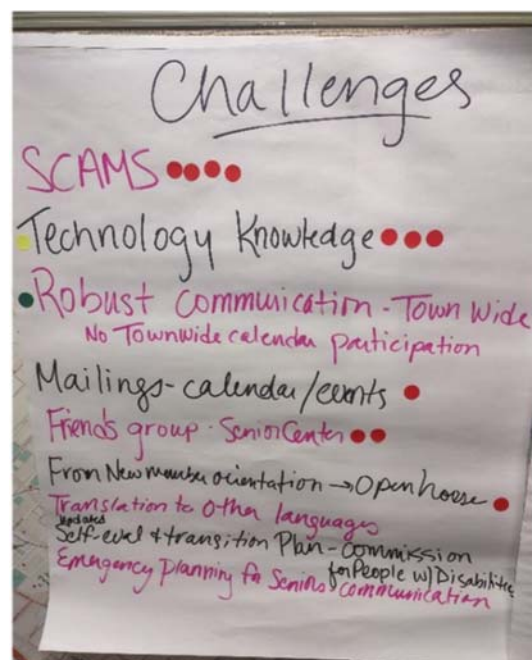 Challenges
SCAMS
Technology Knowledge
Robust Communication - Town Wide
No Townwide calendar participation
Mailings - calendar/events
Friends group - Senior Center
From New member orientation → Open house
Translation to Other languages
updated
Self-eval + transition Plan - Commission
for People w/ Disabilities
Emergency Planning for Seniors communication